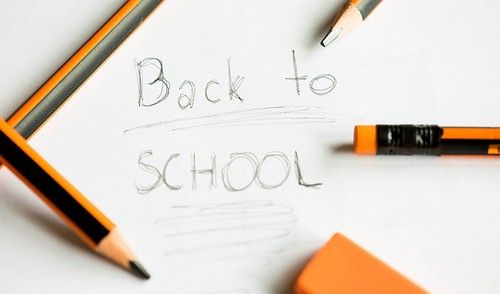 Back to
SCHOOL